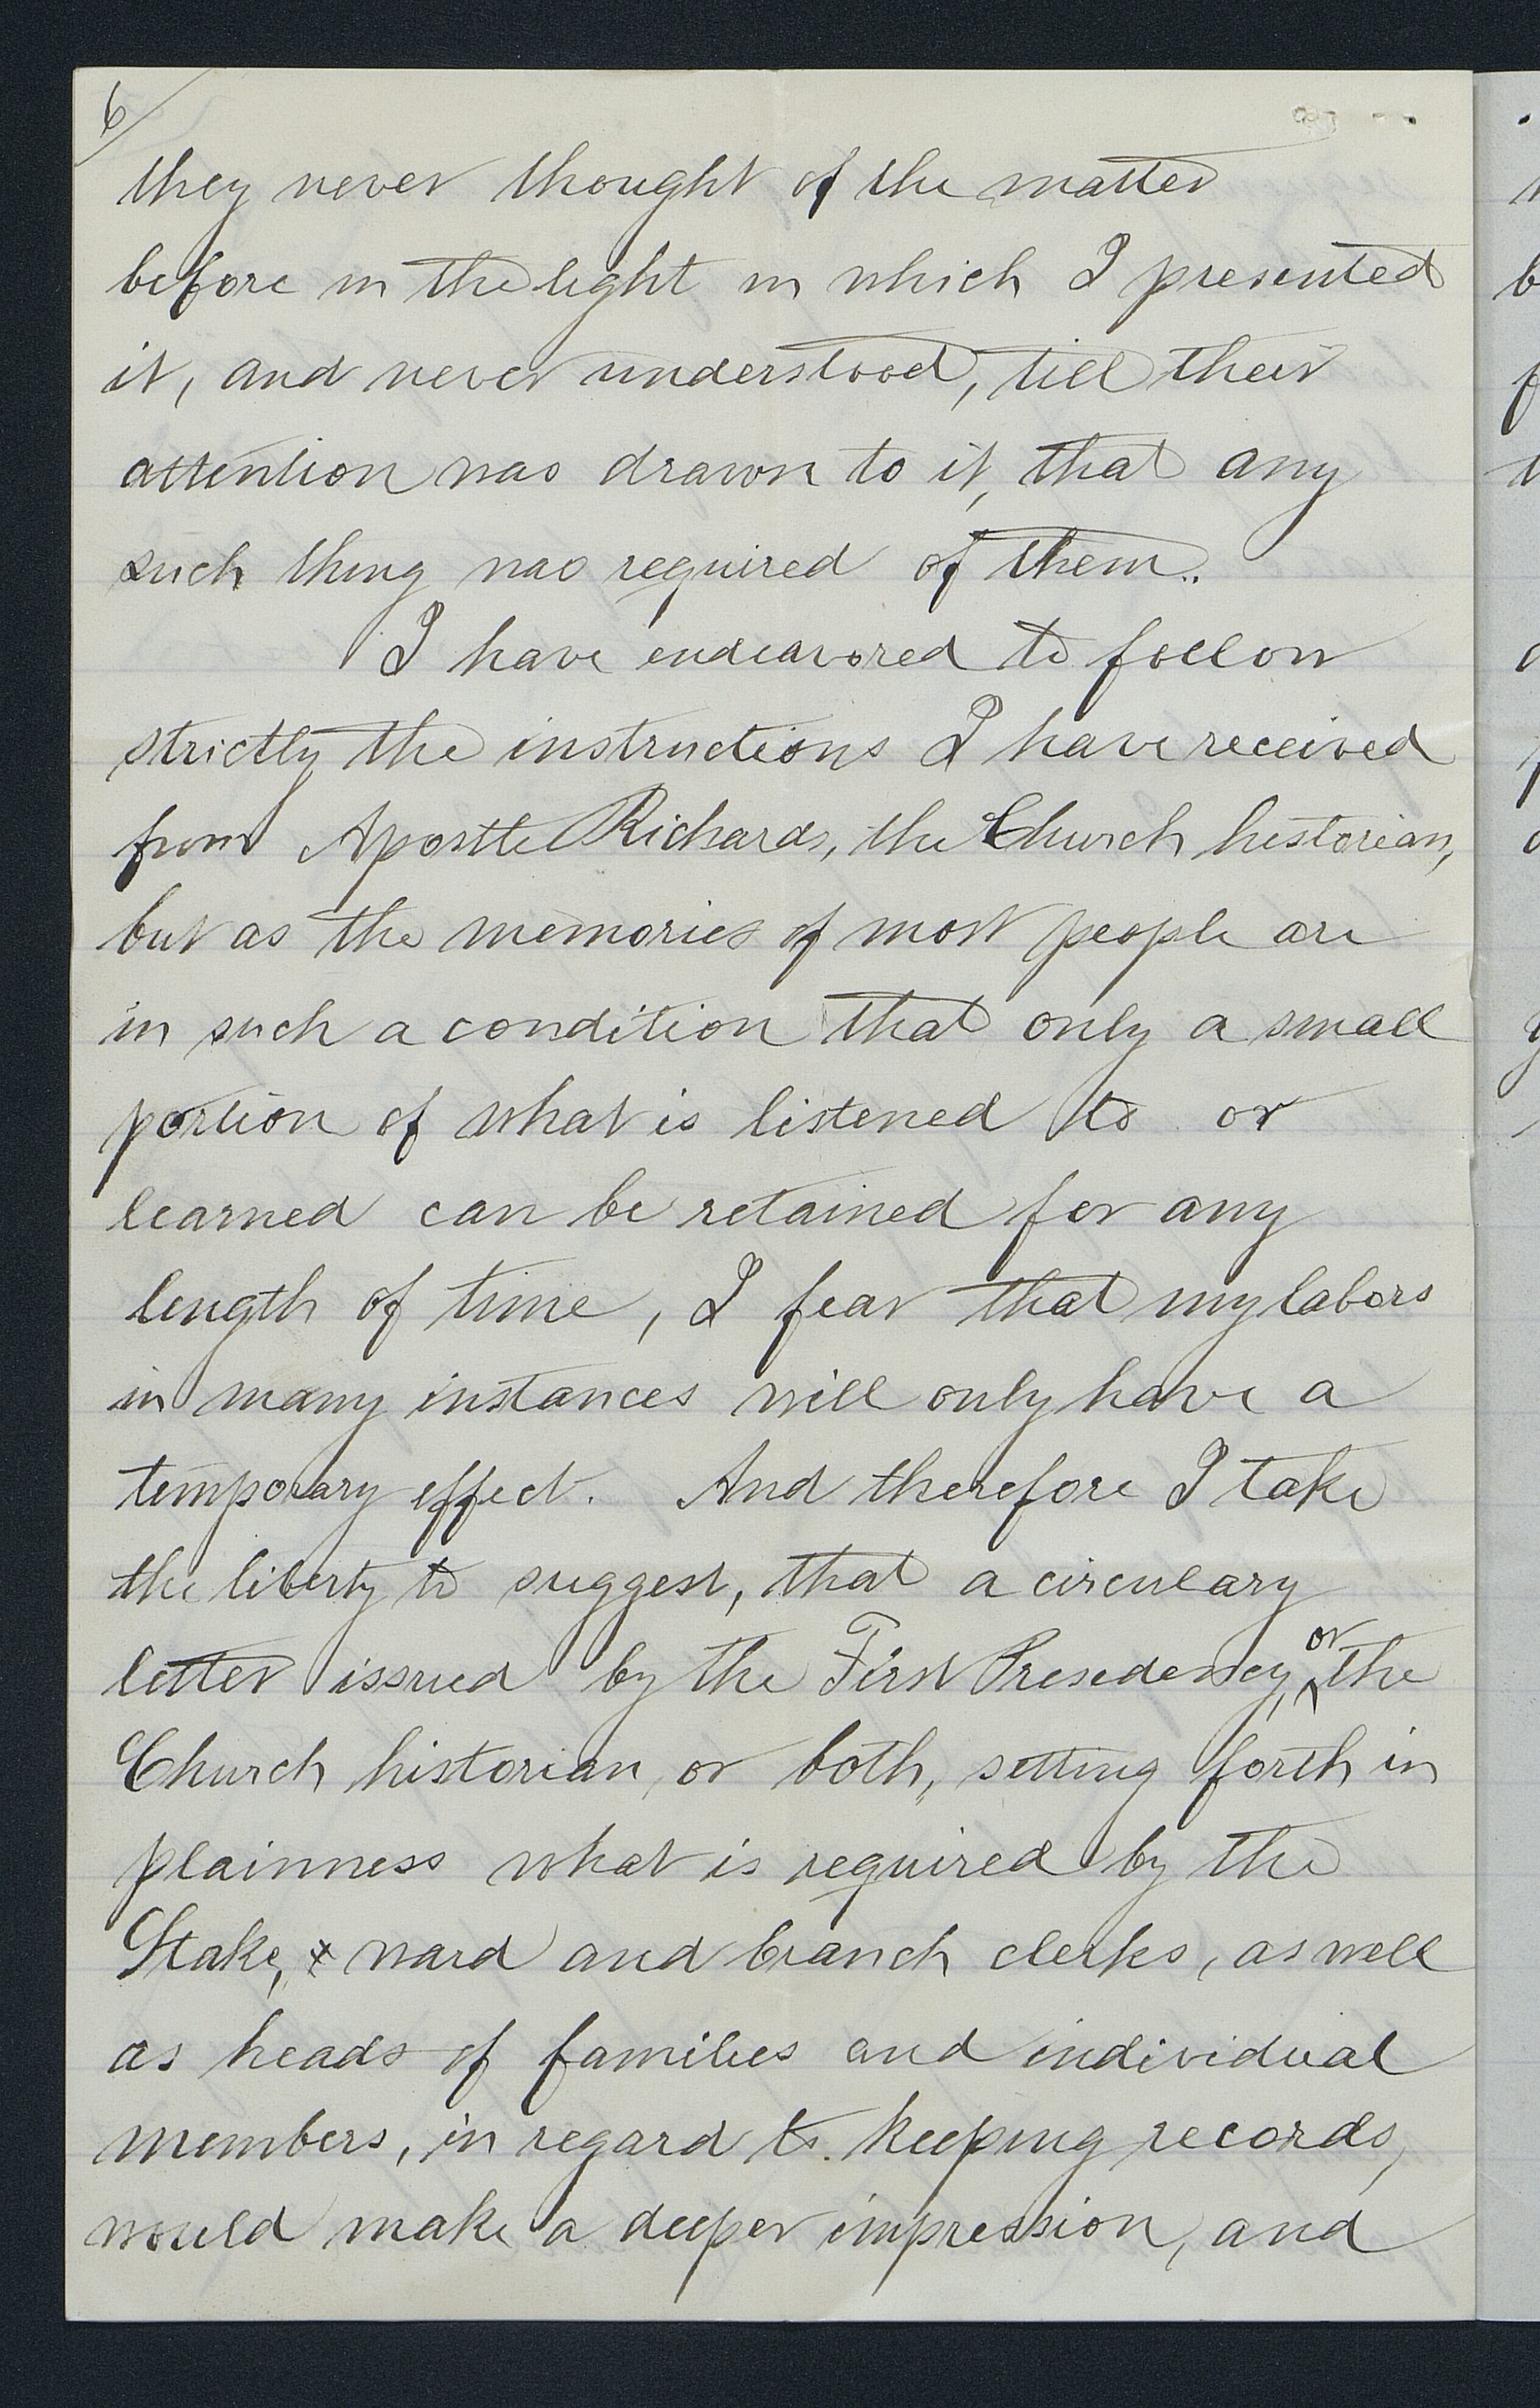 6/
they never thought of the matter
before in the light in which I presented
it, and never understood, till their
attention was drawn to it, that any
such thing was required of them.
I have endeavored to follow
strictly the instructions I have received
from Apostle Richards, the Church historian,
but as the memories of most people are
in such a condition that only a small
portion of what is listened to or
learned can be retained for any
length of time, I fear that my labors
in many instances will only have a
temporary effect. And therefore I take
the liberty to suggest, that a circulary
letter issued by the First Presedency, or the
Church historian, or both, setting forth in
plainness what is required by the
Stake, ward and branch clerks, as well
as heads of families and individual
members, in regard to keeping records,
would make a deeper impression, and